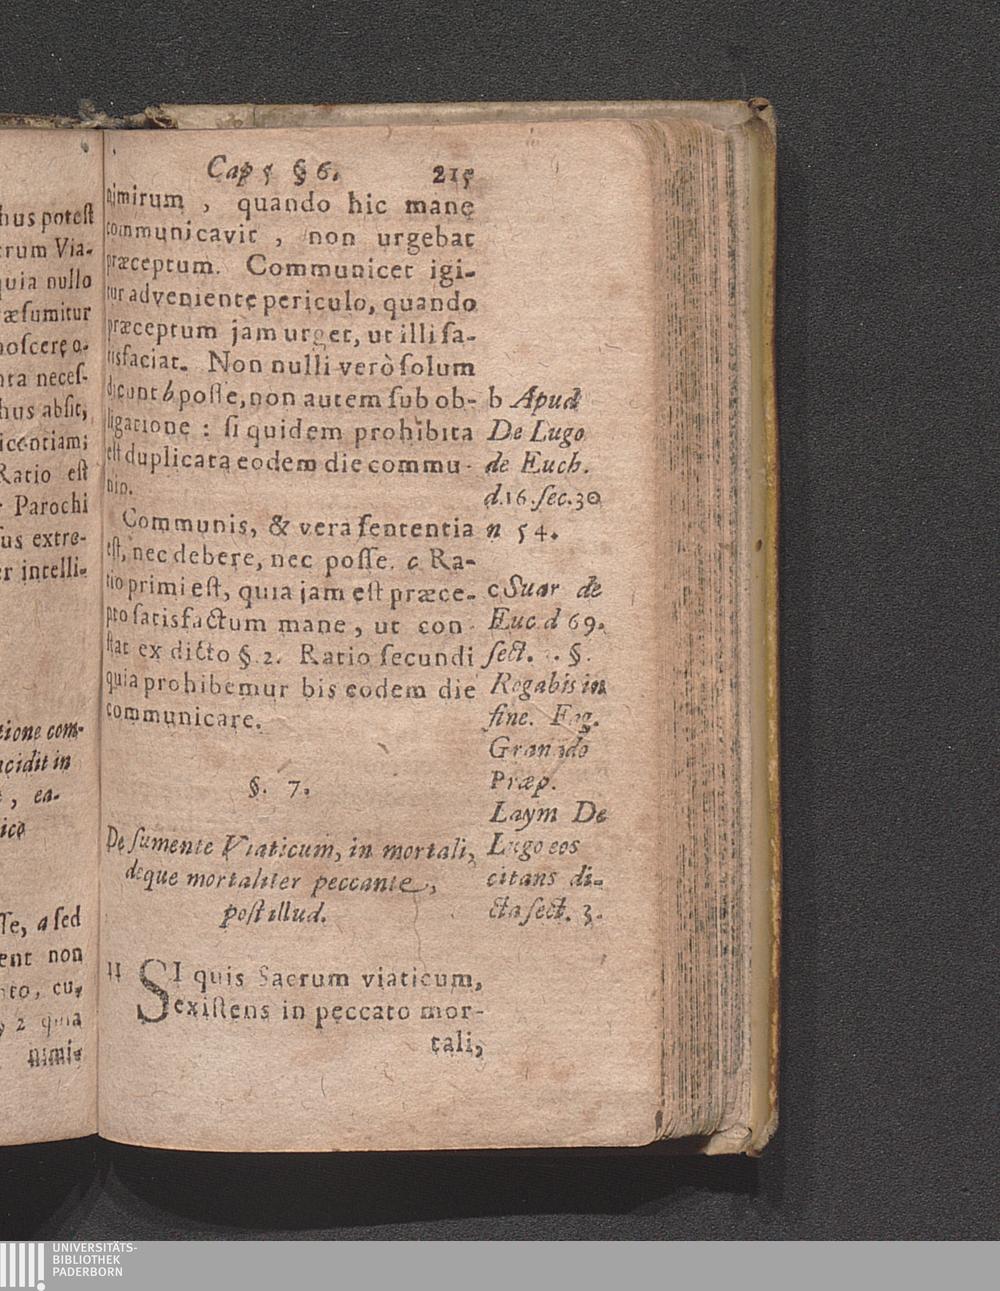 hus potest
crum Via-
quia nullo
æsumitur
noscere o-
nta neces-
hus absit,
icentiam;
Ratio est
Parochi
sus extre-
er intelli-
tione com-
ncidit in
, ea-
ico
sse, a sed
ent non
nto, cu,
2 quia
nimi-
Cap 5 § 6. 215
nimirum , quando hic mane
communicavit , non urgebat
præceptum. Communicet igi-
tur adveniente periculo, quando
præceptum jam urget, ut illi sa-
tisfaciat. Non nulli verò solum
dicunt b posse, non autem sub ob-
ligatione : si quidem prohibita
est duplicata eodem die commu-
nio.
Communis, & vera sententia
est, nec debere, nec posse. c Ra-
tio primi est, quia jam est præce-
pto satisfactum mane, ut con
stat ex dicto § 2. Ratio secundi
quia prohibemur bis eodem die
communicare.
b Apud
De Lugo
de Euch.
d. 16. sec. 30
n 54.
c Suar de
Euc d 69.
sect. . §.
Rogabis in
fine.
Granado
Præp.
Laym De
Lugo eos
citans di-
cta sect. 3.
§. 7.
De sumente Viaticum, in mortali,
deque mortaliter peccante,
post illud.
11 SI quis Sacrum viaticum,
existens in peccato mor-
tali,
UNIVERSITÄTS-
BIBLIOTHEK
PADERBORN